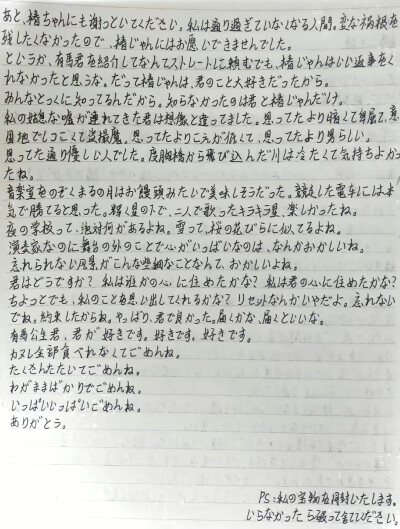 あと、椿ちゃんにも謝っといてください。私は通り過ぎていなくなる人間。変な禍根を
残したくなかったので、椿ちゃんにはお願いできませんでした。
というか、有馬君を紹介してなんてストレートに頼んでも、椿ちゃんはいい返事をく
れなかったと思うな。だって椿ちゃんは、君のこと大好きだったから。
みんなとっくに知ってるんだから。知らなかったのは君と椿ちゃんだけ。
私の姑息な嘘が連れてきた君は想像と違ってました。思ってたより暗くて卑屈で、意
固地でしつこくて盗撮魔。思ってたより声が低くて、思ってたより男らしい。
思ってた通り優しい人でした。度胸橋から飛び込んだ川は冷たくて気持ちよかっ
たね。
音楽室をのぞくまるの月はお饅頭みたいで美味しそうだった。競走した電車には本
気で勝てると思った。輝く星の下で、二人で歌ったキラキラ星、楽しかったね。
夜の学校って、絶対何があるよね。雪って、桜の花びらに似てるよね。
演奏家なのに舞台の外のことで心がいっぱいなのは、なんかおかしいね。
忘れられない風景がこんな些細なことなんて、おかしいよね。
君はどうですか? 私は誰かの心に住めたかな? 私は君の心に住めたかな?
ちょっとでも、私のことを思い出してくれるかな? リセットなんかいやだよ。忘れない
でね。約束したからね。やっぱり、君で良かった。届くかな、届くといいな。
有馬公生君、君が好きです。好きです。好きです。
カヌレ全部食べれなくてごめんね。
たくさんたたいてごめんね。
わがままばかりでごめんね。
いっぱいいっぱいごめんね。
ありがとう。
PS:私の宝物を同封いたします。
いらなかったら破って捨てください。